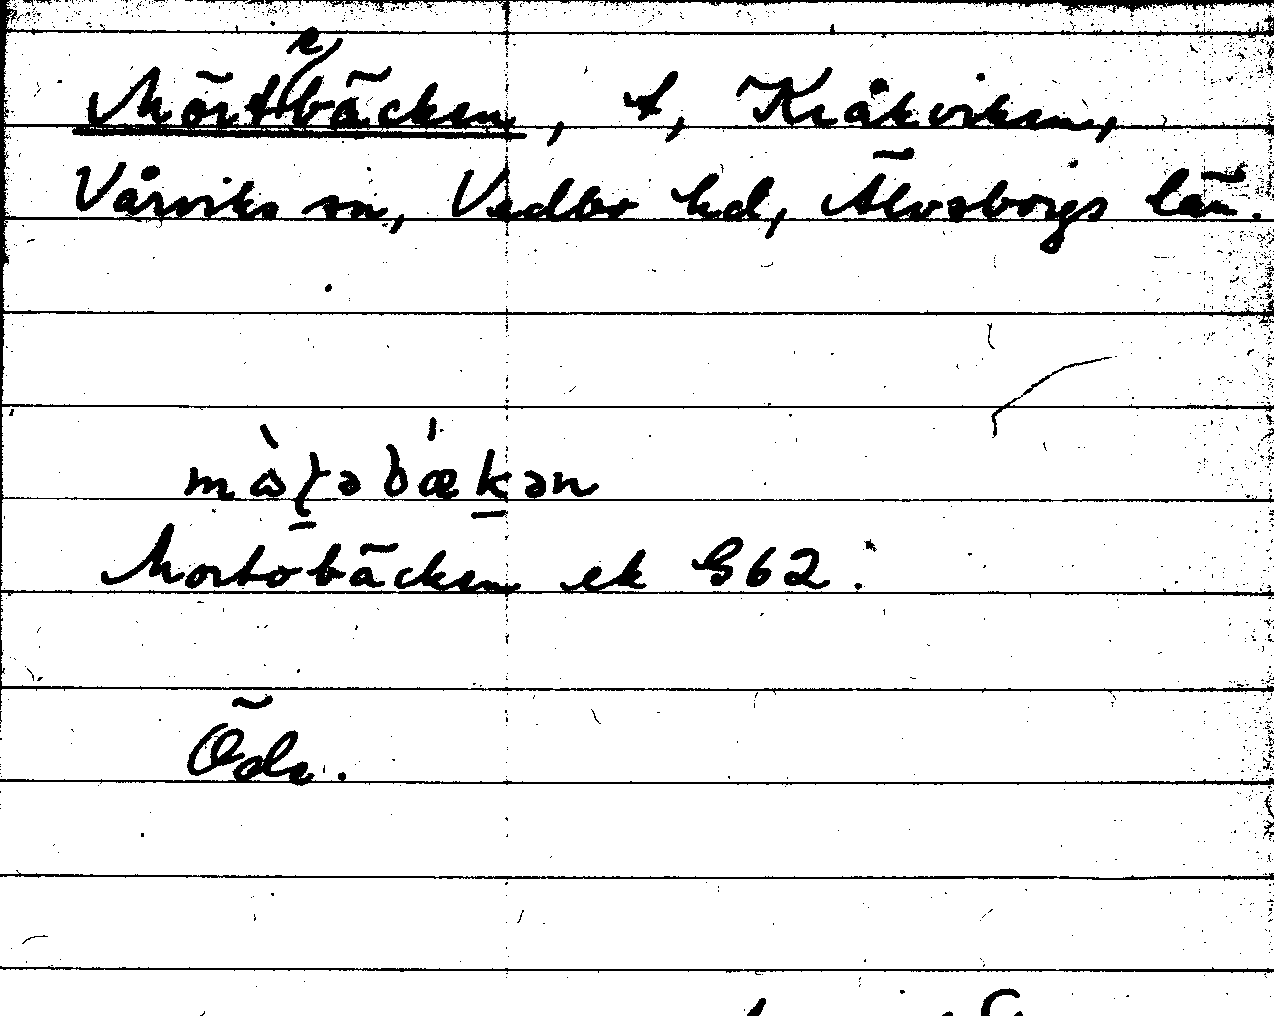 Mörtebäcken, t, Kråkviken,
Vårviks sn, Vedbo hd, Älvsborgs län.
Mortobäcken ek G62.
Öde.